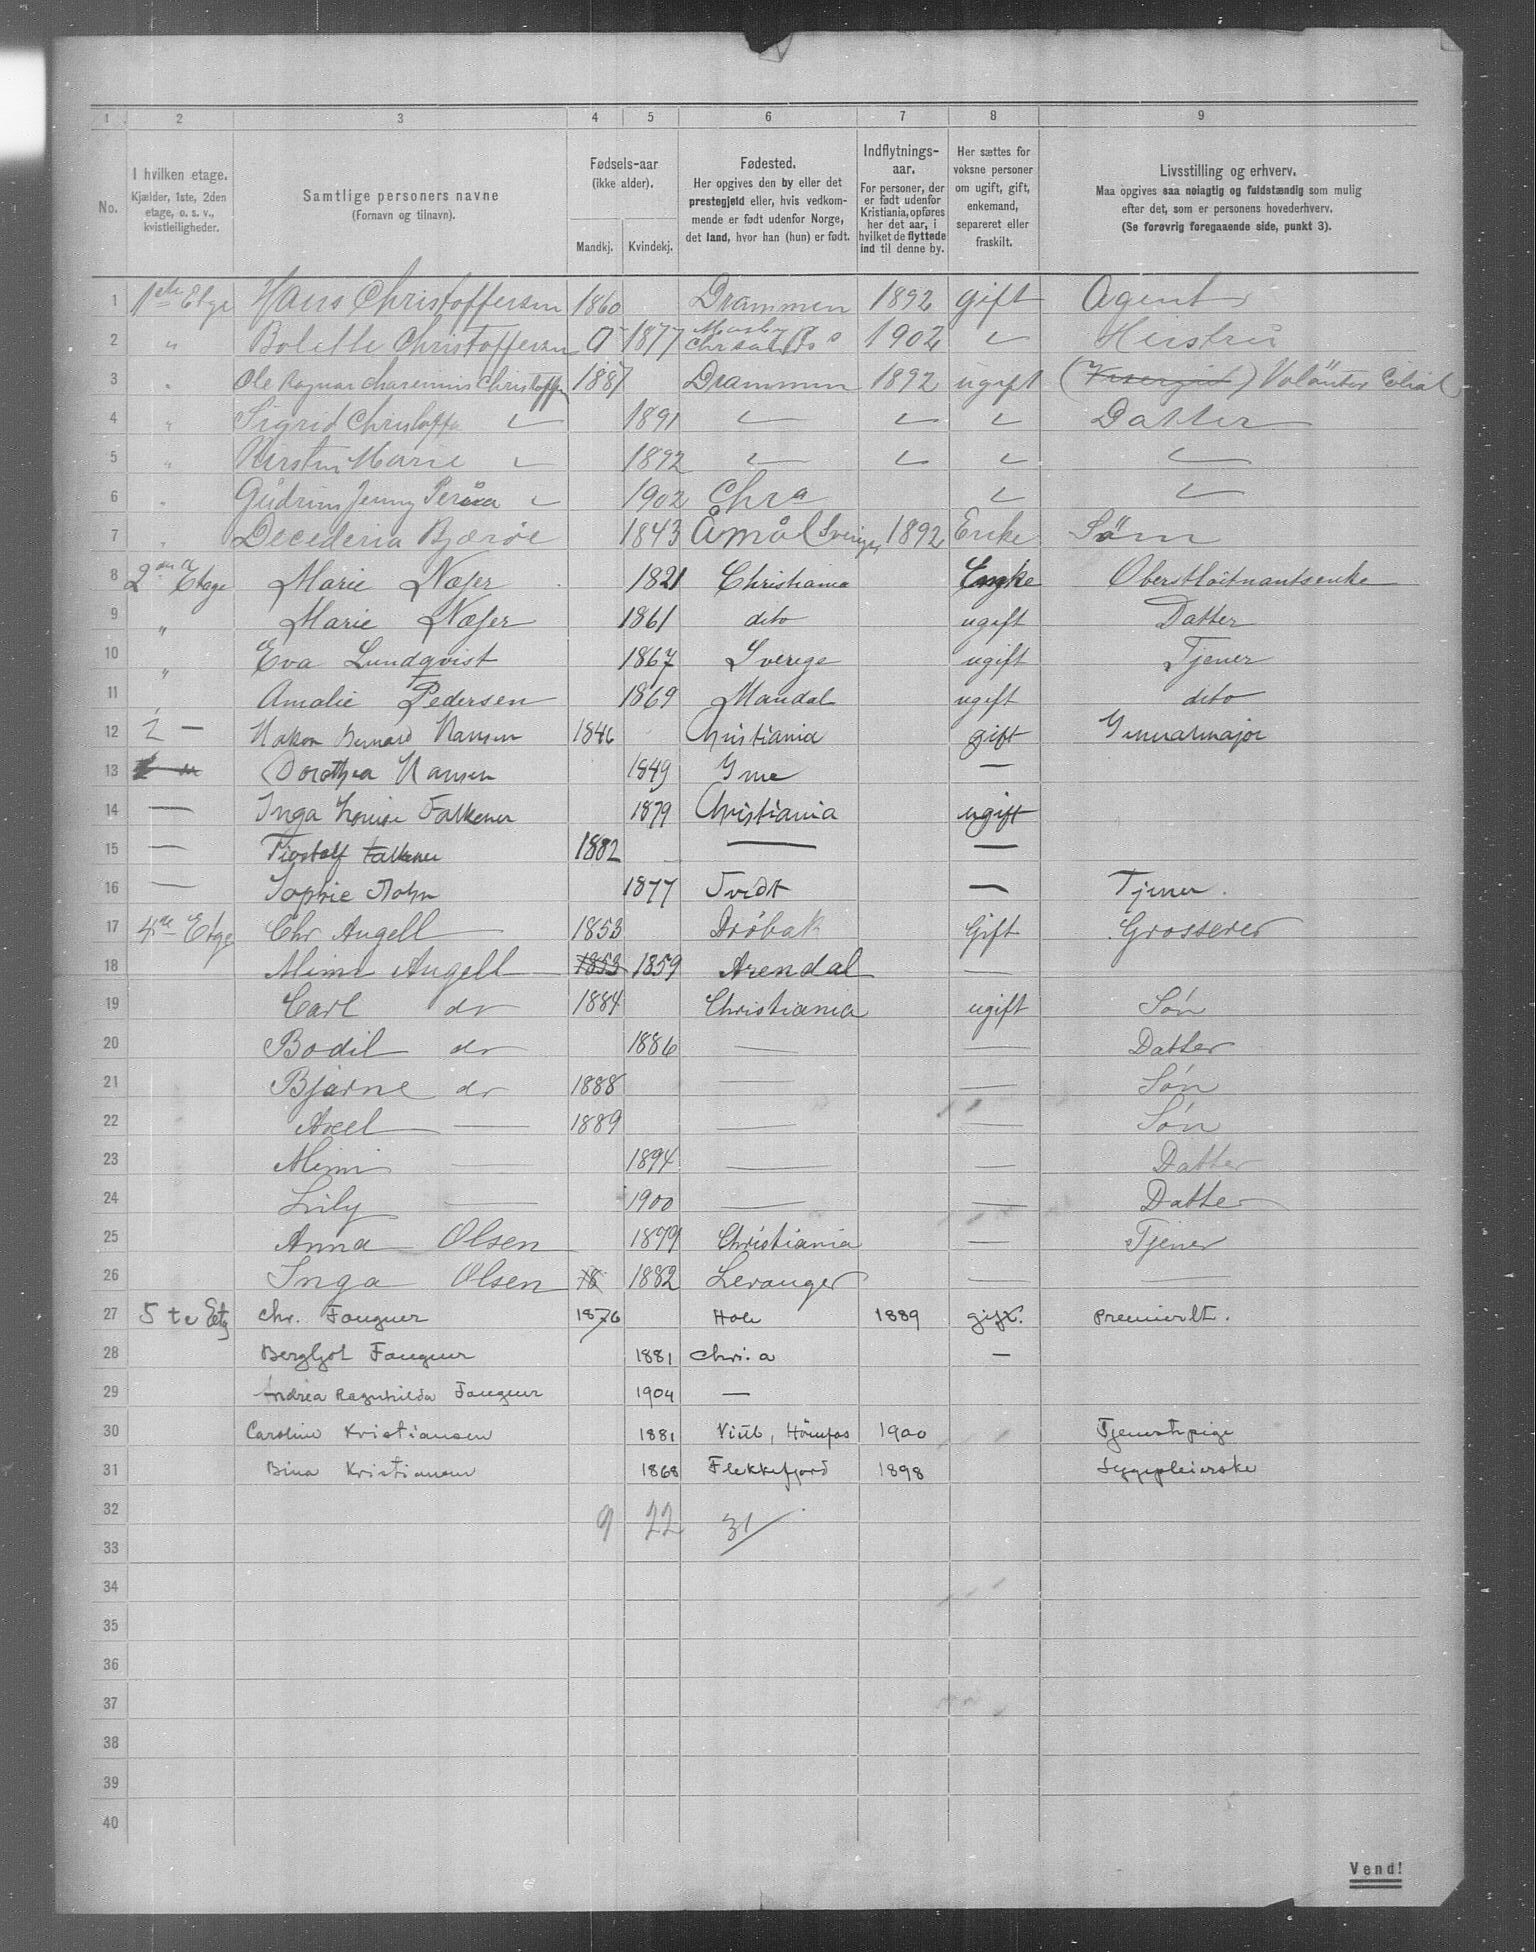 1 2 3 4 5 6 7 8 9
No. I hvilken etage. Kjælder, 1ste, 2den etage, o. s. v., kvistleiligheder.
Samtlige personers navne (Fornavn og tilnavn).
Fødsels-aar (ikke alder). Mandkj. Kvindekj.
Fødested. Her opgives den by eller det prestegjeld eller, hvis vedkommende er født udenfor Norge, det land, hvor han (hun) er født.
Indflytnings-aar. For personer, der er født udenfor Kristiania, opføres her det aar, i hvilket de flyttede ind til denne by.
Her sættes for voksne personer om ugift, gift, enkemand, separeret eller fraskilt.
Livsstilling og erhverv. Maa opgives saa nøiagtig og fuldstændig som mulig efter det, som er personens hovederhverv. (Se forøvrig foregaaende side, punkt 3).
1 1ste Etge Hans Christoffersen 1860 Drammen 1892 gift Agent
2 " Bolette Christoffersen 1877 1902 " Hustru
3 " Ole Ragnar Christoffer 1887 Drammen 1892 ugift Volontør
4 " Sigrid Christoffe " 1891 " " " Datter
5 " Kirstin Marie " 1892 " " " "
6 " Gudrun Jenny " 1902 Chra " "
7 " Bjærøe 1843 Åmål Sverige 1892 Enke
8 2den Etage Marie Næser 1821 Christiania Enke Oberstløitnantsenke
9 " Marie Næser 1861 dito ugift Datter
10 " Eva Lundqvist 1867 Sverige ugift Tjener
11 Amalie Pedersen 1869 Mandal ugift dito
12 2 — Hakon Bernard Hansen 1846 Christiania gift Generalmajor
13 Dorothea Hansen 1849 —
14 — Inga Louise Falkener 1879 Christiania ugift
15 — Tiostolf Falkener 1882 — —
16 — Sophie 1877 Tvedt — Tjener.
17 4de Etge Chr Angell 1853 Drøbak Gift Grosserer
18 Mimi Angell 1853 1859 Arendal —
19 Carl do 1884 Christiania ugift Søn
20 Bodil do 1886 — — Datter
21 Bjarne do 1888 — — Søn
22 Axel — 1889 — — Søn
23 Mimi — 1894 — — Datter
24 Lily — 1900 — — Datter
25 Anna Olsen 1879 Christiania — Tjener
26 Inga Olsen 18 1882 Levanger — —
27 5te Etg Chr. Fougner 1876 Hole 1889 gift. Premierlt.
28 Bergljot Fougner 1881 Chri.a —
29 Andrea Ragnhilda Fougner 1904 —
30 Caroline Kristiansen 1881 Hönefos 1900 Tjenestepige
31 Bina Kristiansen 1868 Flekkefjord 1898 Sygepleierske
32 9 22 31
33
34
35
36
37
38
39
40
Vend!